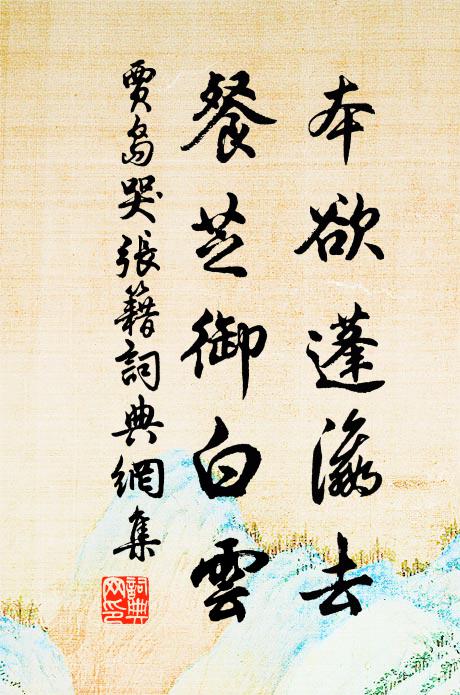 本欲蓬瀛去
餐芝御白雲
賈島哭張籍詞典網集
詞典